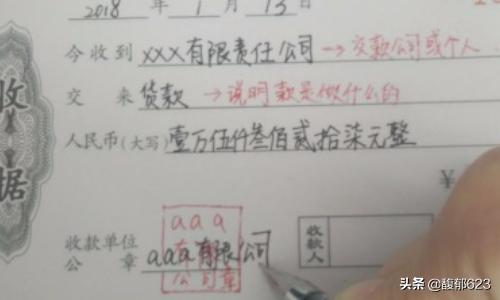 2018 年 1 月 13 日
今收到 xxx有限责任公司 →交款公司或个人
交 来 货款 →说明款是做什么的
人民币(大写) 壹万伍仟叁佰贰拾柒元整
收据
¥
aaa
收款单位
公 章 aaa有限公司
公司章
收款人
头条 @馥郁623